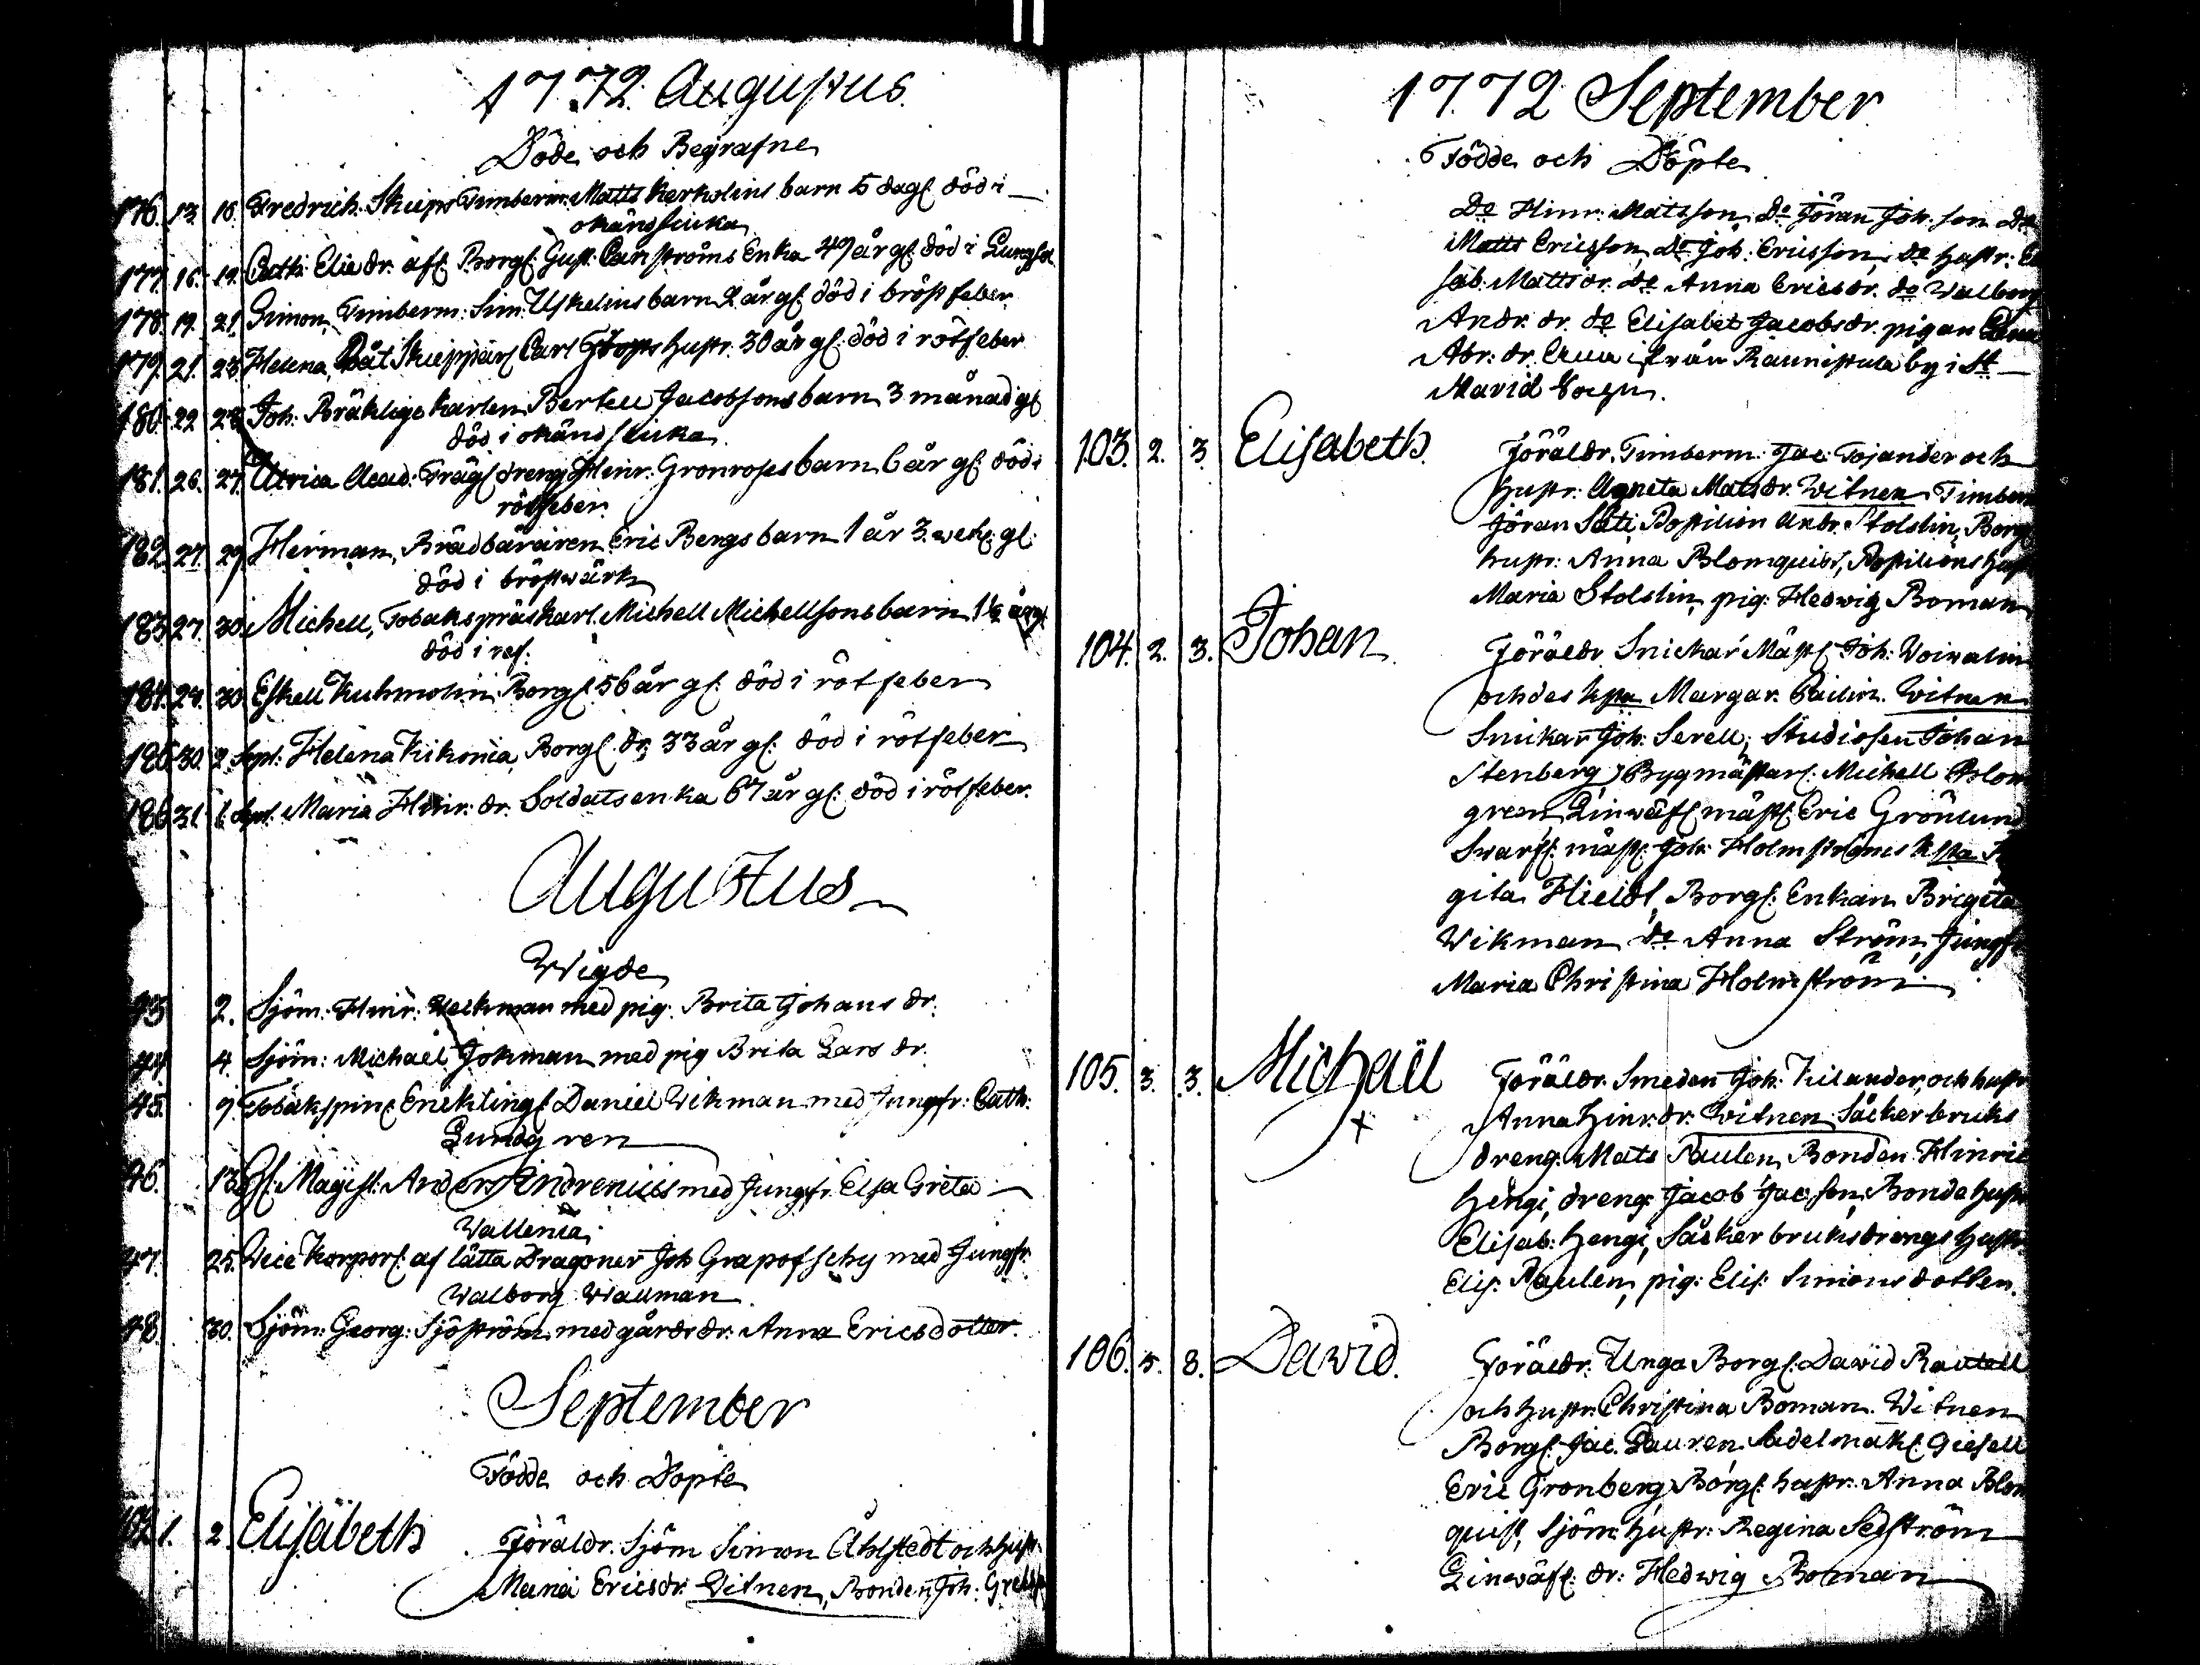 1772. Augustus.
Döde och Begrafne
176. 13. 16. Fredrich. Skieps Timberm. Matts Kerkolins barn 5 dag. död i
okänd siuka
177. 16. 19. Cath: Elia dr. afl. Borg. Gust. Carlströms Enka 47 år gl. död i Lungsot
178. 19. 21. Simon, Timberm: Sim: Uskelins barn 2 år gl. död i bröst feber
179. 21. 23. Helena, Båt Skieppar Carl hustr. 30 år gl. död i rötfeber
180. 22 28. Joh. Bräklige karlen Bertell Jacobsons barn 3 månad gl
död i okänd siuka
181. 26. 27. Ulrica Acad: Trägl dreng Heinr: Gronroses barn 6 år gl. död i
rötfeber.
182 27. 29. Herman, Brädbäraren Eric Bergs barn 1 år 3. wek. gl:
död i bröstwärk
183 27. 30. Michell, Tobakspräskarl. Michell Michellsons barn 1½ år gl.
död i ref.
184. 29. 30. Eskell Kuhmolin Borgl. 56 år gl. död i rötfeber
185. 30. 2 Sept: Helena Kikonia, Borgl. dr, 33 år gl. död i rötfeber
186 31. 6 Sept. Maria Hinr. dr. Soldatsenka 67 år gl. död i rötfeber.
Augustus
Wigde
43 2. Sjöm: Hinr: Weckman med pig. Brita Johans dr.
44 4. Sjöm: Michael Johman med pig Brita Lars dr.
45. 9. Tobakspin. Enekling. Daniel Wikman med Jungfr: Cath:
Lundgren
46. 13. Magist: Anders Andrenius med Jungfr. Elsa Greta
Wallenia.
47. 25. Vice Korporl: af lätta Dragoner Joh Grapofschy med Jungfr.
Walborg Wallman
48. 30. Sjöm: Georg: Sjöström med gårds dr. Anna Ericsdotter.
September
Födde och Döpte
102 1. 2. Elisabeth Föräldr. Sjöm Simon Åhlstedt och hustr.
Maria Ericsdr. Witnen, Bonden Joh: Grels
1772 September
Födde och Döpte
Do Hinr: Matsson, Do Jöran Joh: son Do
Matts Ericsson, Do Joh: Ericsson, do hustr: E
sab. Mattsdr. do Anna Ericsdr. do Walborg
Andr. dr. do Elisabet Jacobsdr. pigan
Abr: dr. ifrån Raunistula by i St
Marid Sochn.
103. 2. 3. Elisabeth. Föräldr. Timberm: Jac: Tojander och
hustr: Agneta Matsdr. Witnen Timberm
Jöran Säti, Postilion Andr. Stolslin, Borg
hustr: Anna Blomquist, Postilions hust
Maria Stolslin, pig: Hedwig Boman
104. 2. 3. Johan. Föräldr Snickar Mäst. Joh: Woiwalin
och des hsta Margar. Pailin. Witnen
Snikarn Joh: Serell, Studiosen Johan
Stenberg, Bygmästar. Michell Blom
gren Linwäf. mäst. Eric Grönlund
Swarf. mäst. Joh: Holmströms hsta
gita Hieldt, Borgl: Enkan Brigeta
Wikman do Anna Ström, Jungfr
Maria Christina Holmström.
105. 3. 3. Michaël Föräldr. Smeden Joh: Kilander, och hustr
x Anna Hinr.dr. Witnen Såckerbruks
dreng. Mats Paulen, Bonden Hinric
Hengi, dreng. Jacob Jacson, Bonde hustr
Elisab: Hengi, Såckerbruksdrengs hustr
Elis: Paulen, pig: Elis: Simons dotter.
106. 5. 8. David. Föräldr. Unga Borgl. David Rautell
och hustr. Christina Boman. Witnen
Borgl: Jac. Lauren Sadelmakl. Giesell
Eric Gronberg, Borgl: hustr: Anna Blom
quist, Sjöm: hustr: Regina Sedström
Linwäf: dr: Hedwig Boman